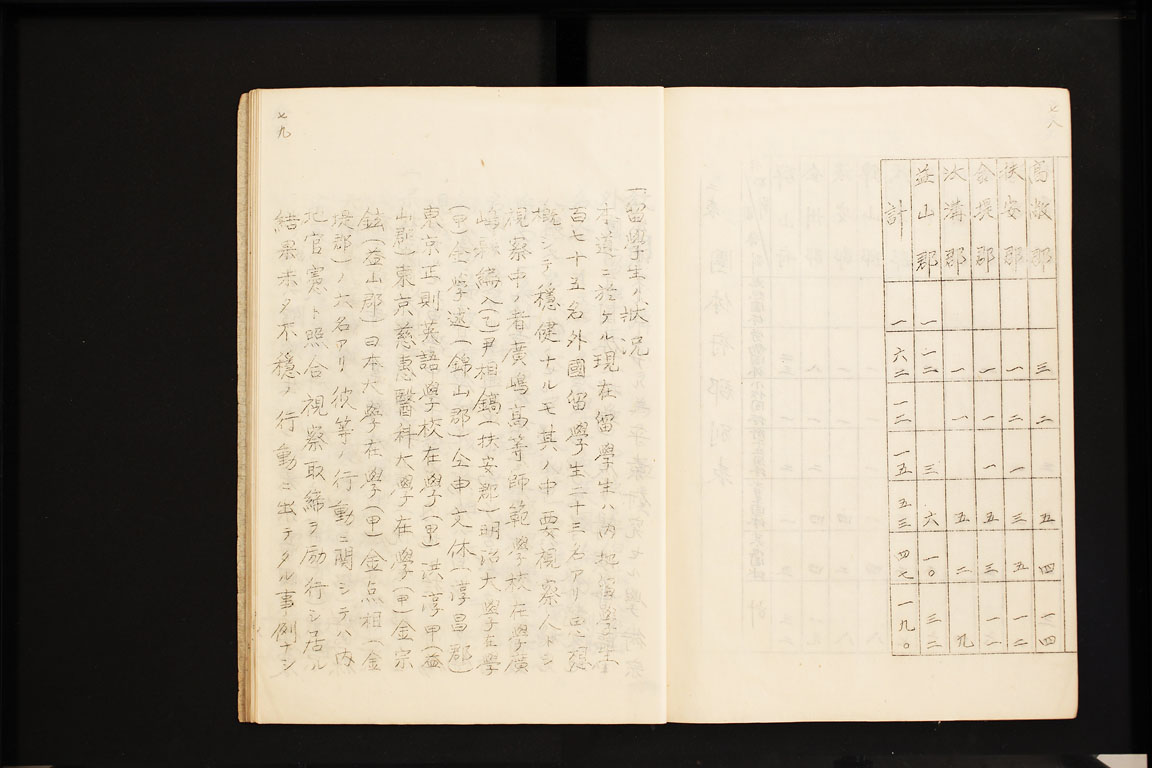 七八
高敞郡 三 二 五 四 一四
扶安郡 一 二 一 三 五 一二
金堤郡 一 一 一 五 三 一一
沃溝郡 一 一 五 二 九
益山郡 一 一二 三 六 一〇 三二
計 一 六二 一二 一五 五三 四七 一九〇
七九
一、留學生ノ狀況
本道ニ於ケル現在留學生ハ內地留學生
百七十五名外國留學生二十三名アリ思想
概シテ穩健ナルモ其ノ中要視察人トシ
視察中ノ者廣嶋高等師範學校在學廣
嶋縣編入(乙)尹相鎬(扶安郡)明治大學在學
(甲)金學述(錦山郡)仝申文休(淳昌郡)
東京正則英語學校在學(甲)洪淳甲(益
山郡)東京慈惠醫科大學在學(甲)金宗
鉉(益山郡)日本大學在學(甲)金点相(金
堤郡)ノ六名アリ彼等ノ行動ニ關シテハ內
地官憲ト照合視察取締ヲ励行シ居ル
結果未タ不穩ノ行動ニ出テタル事例ナシ